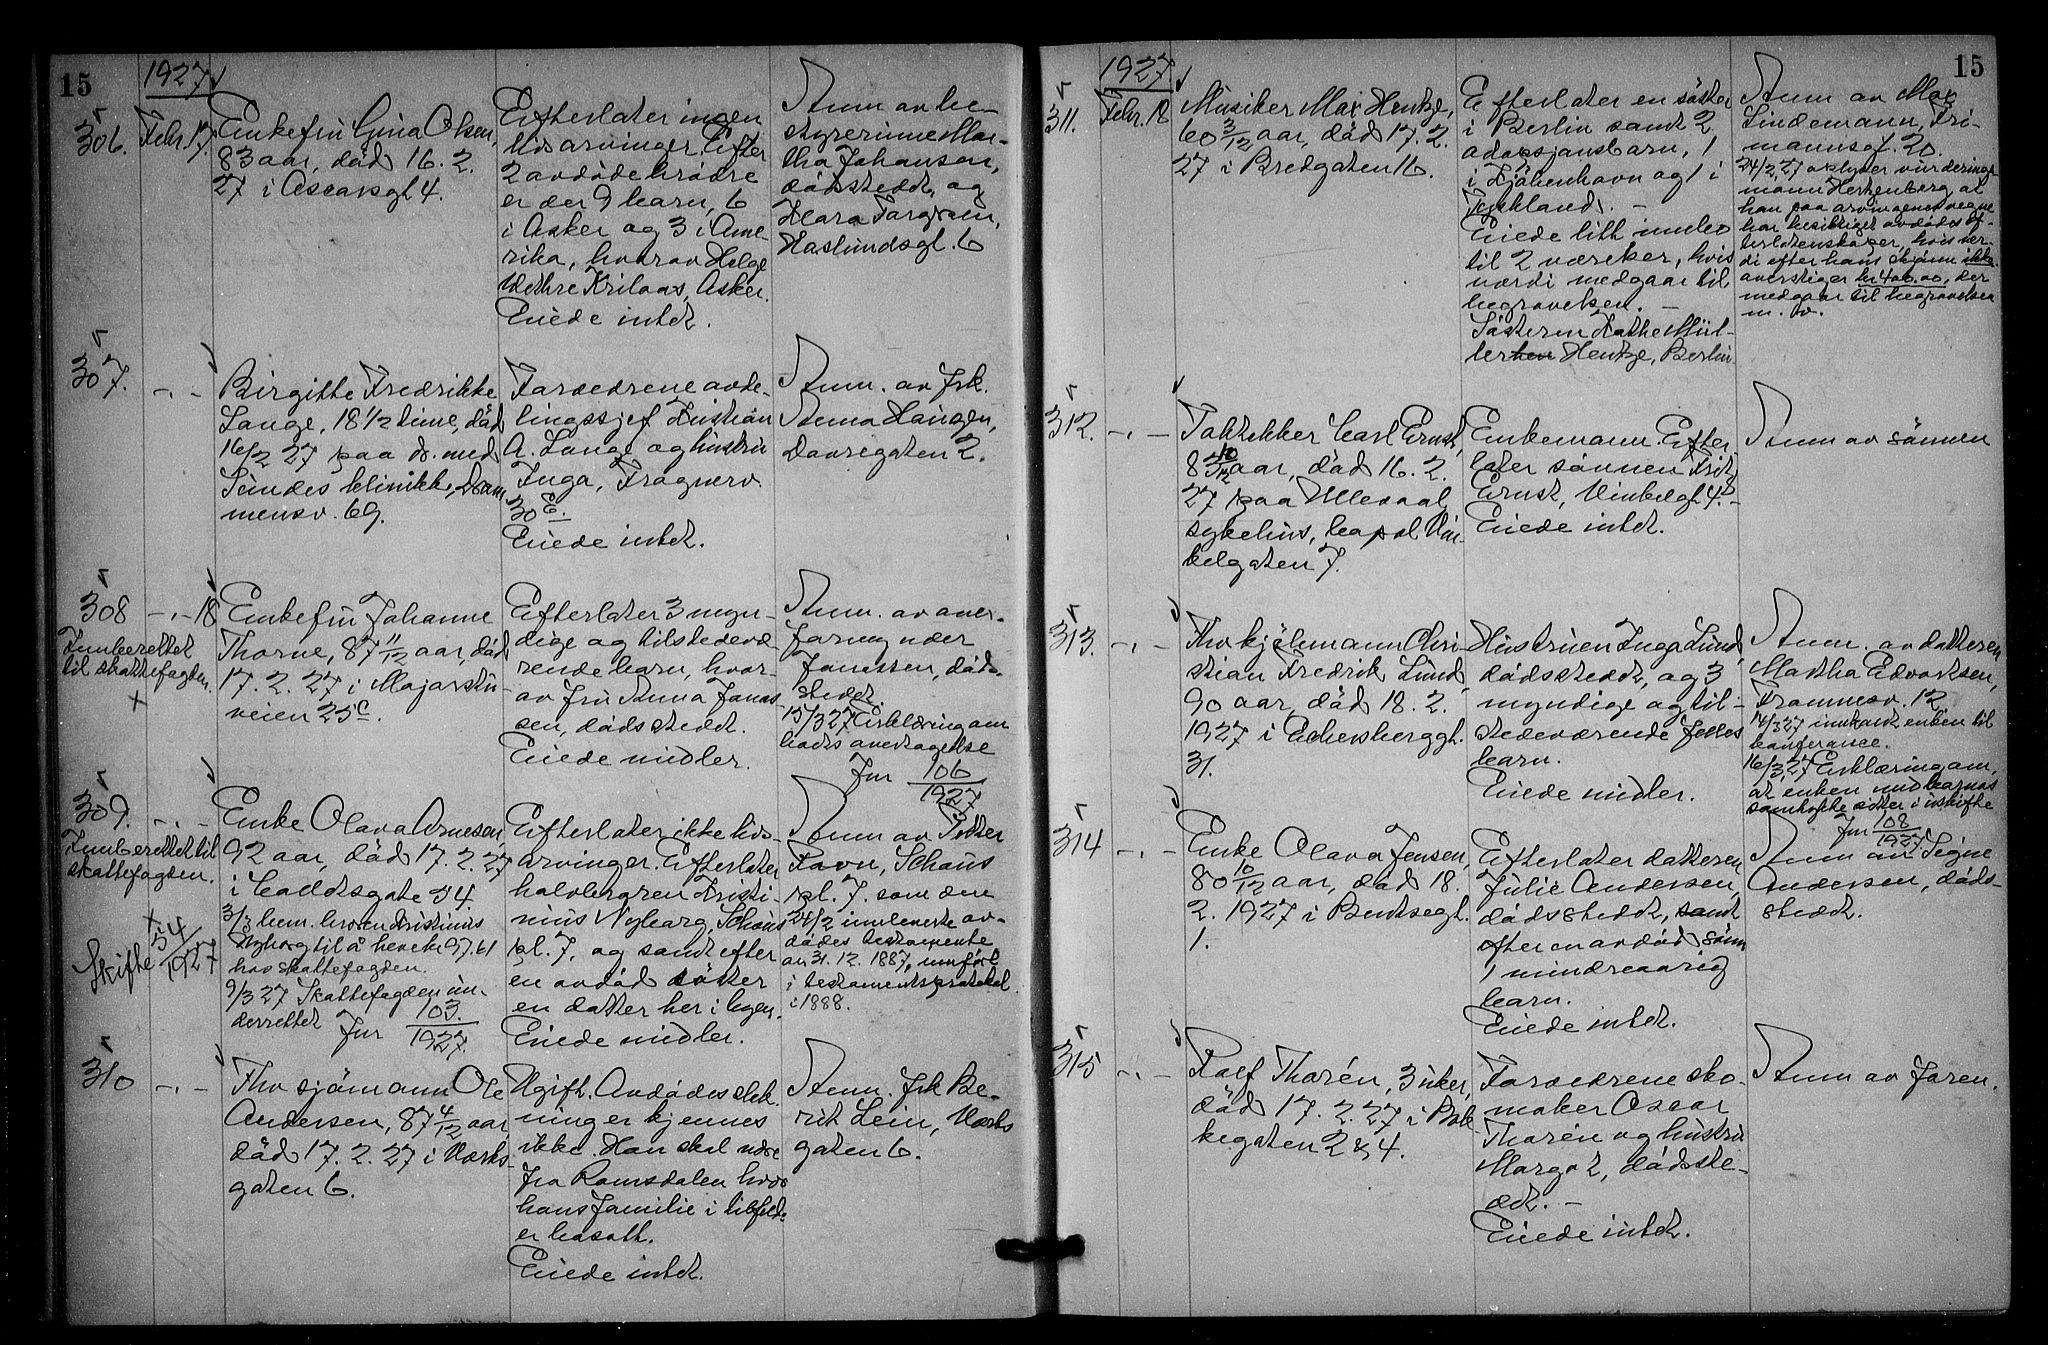 15
1927
306.
Febr. 17.
Enkefru Gina Olsen,
83 aar, död 16. 2.
27 i Oscarsgt 4.
Efterlater ingen
livsarvinger. Efter
2 avdöde brödre
er der 9 barn, 6
i Asker og 3 i Ame-
rika, hvorav Helge
Asker.
Eiede intet.
Anm av be-
styrerinne Mar-
tha Johansen,
dödsstedet, og
Haslundsgt. 6
307.
-,-
Birgitte Fredrikke
Lange, 18 1/2 time, död
16/2 27 paa dr. med
Sundes klinikk, Dram-
mensv. 69.
Forældrene avde-
lingssjef Kristian
A. Lange og hustru
Inga, Frognerv.
30 E.
Eiede intet.
Anm. av frk.
Anna Haugen,
Dovregaten 2.
308
-,- 18
Innberettet
til skattefogden.
x
Enkefru Johanne
Thorne, 87 11/12 aar, död
17. 2. 27 i Majorstu-
veien 25 c.
Efterlater 3 myn-
dige og tilstedevæ-
rende barn, hvor-
av fru Anna Jonas-
sen, dödsstedet.
Eiede midler.
Anm. av over-
Jonassen, döds-
stedet.
15/3 27 Erklæring om
bodsovertagelse
Jnr 106/1927
309.
-,-
Innberettet til
skattefogden.
x
Skifte 54/1927
Enke Olava Arnesen,
92 aar, död 17. 2. 27
i Colletsgate 34
3/3 bem. broren Kristinius
Nyborg til å heve kr 97.61
hos skattefogden.
9/3 27 Skattefogden un-
derrettet Jnr 103/1927.
Efterlater ikke livs-
arvinger. Efterlater
halvbroren Kristi-
nius Nyborg, Schous
pl. 7, og samt efter
en avdöd söster
en datter her i byen.
Eiede midler.
Anm av Petter
Ravn, Schous
pl. 7. som den
24/2 innleverte av-
dödes testamente
av 31. 12. 1887, innfört
i testamentsprotokol
i 1888.
310
-,-
Fhv sjömann Ole
Andersen, 87 4/12 aar,
död 17. 2. 27 i Verks-
gaten 6.
Ugift. Avdödes slek-
ninger kjennes
ikke. Han skal være
fra Romsdalen hvor
hans familie i tilfelde
er bosatt.
Eiede intet.
Anm. frk Be-
rit Lein, Verks
gaten 6.
15
1927.
311.
Febr. 18
Musiker Max Hentze,
60 3/12 aar, död 17. 2.
27 i Bredgaten 16.
Efterlater en söster
i Berlin samt 2
adopsjonsbarn, 1
i Kjöbenhavn og 1 i
Tyskland. -
Eiede litt innbo
til 2 værelser, hvis
værdi medgaar til
begravelsen. -
Sösteren Käthe Mül-
ler Hentze, Berlin
Anm av Max
Lindemann, Fri-
manns gt. 20.
24/2 27 oplyder vurderings-
mann Hertzenberg at
han paa arvingenes vegne
har besiktiget avdödes ef-
terlatenskaper, hvis vær-
di efter hans skjönn ikke
overstiger kr 400.00, der
medgaar til begravelsen
m. v.
312.
-,-
Taktekker Carl Ernst,
83 10/12 aar, död 16. 2.
27 paa Ullevaal
sykehus, bopæl Vin-
kelgaten 7.
Enkemann. Efter-
later sönnen Fritz
Ernst, Vinkelgt 4b -
Eiede intet.
Anm av sönnen
313.
-,-
Fhv kjöbmann Chri-
stian Fredrik Lund,
90 aar, död 18. 2.
1927 i Eckersberggt.
31.
Hustruen Inga Lund,
dödsstedet, og 3
myndige og til-
stedeværende felles
barn.
Eiede midler.
Anm. av datteren
Martha Edvartsen,
Framnesv. 12
14/3 27 innkaldt enken til
konferance.
16/3 27 Erklæring om,
at enken med barnas
samtykke sitter i uskifte
Jnr 108/1927
314
-,-
Enke Olava Jensen,
80 10/12 aar, död 18.
2. 1927 i Bentsegt.
1.
Efterlater datteren
Julie Andersen,
dödsstedet, samt
efter en avdöd sönn
1 mindreaarig
barn.
Eiede intet.
Anm av Signe
Andersen, döds-
stedet.
315
-,-
Rolf Thorén, 3 uker,
död 17. 2. 27 i Bak-
kegaten 2 & 4.
Forældrene sko-
maker Oscar
Thorén og hustru
Margot, dödsste-
det. -
Eiede intet.
Anm av faren.